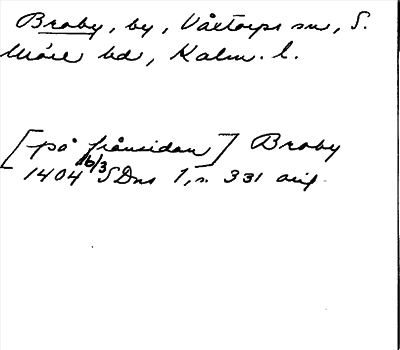 Broby, by, Våxtorps sn, S.
Möre hd, Kalm. l.
[på frånsidan] Broby
1404 16/3 SDns 1, s. 331 orig.